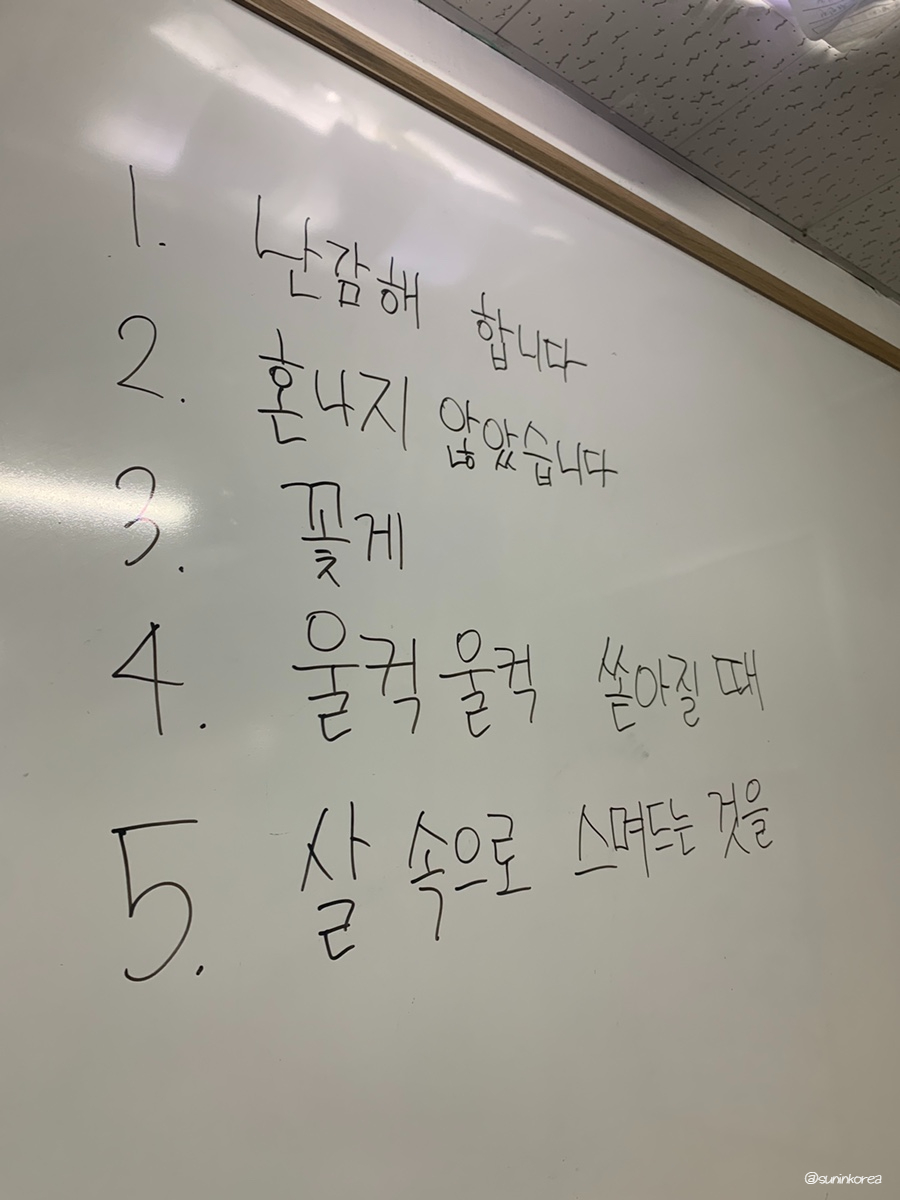 1. 난감해 합니다
2. 혼나지 않았습니다
3. 꽃게
4. 울컥울컥 쏟아질 때
5. 살 속으로 스며드는 것을
@suninkorea